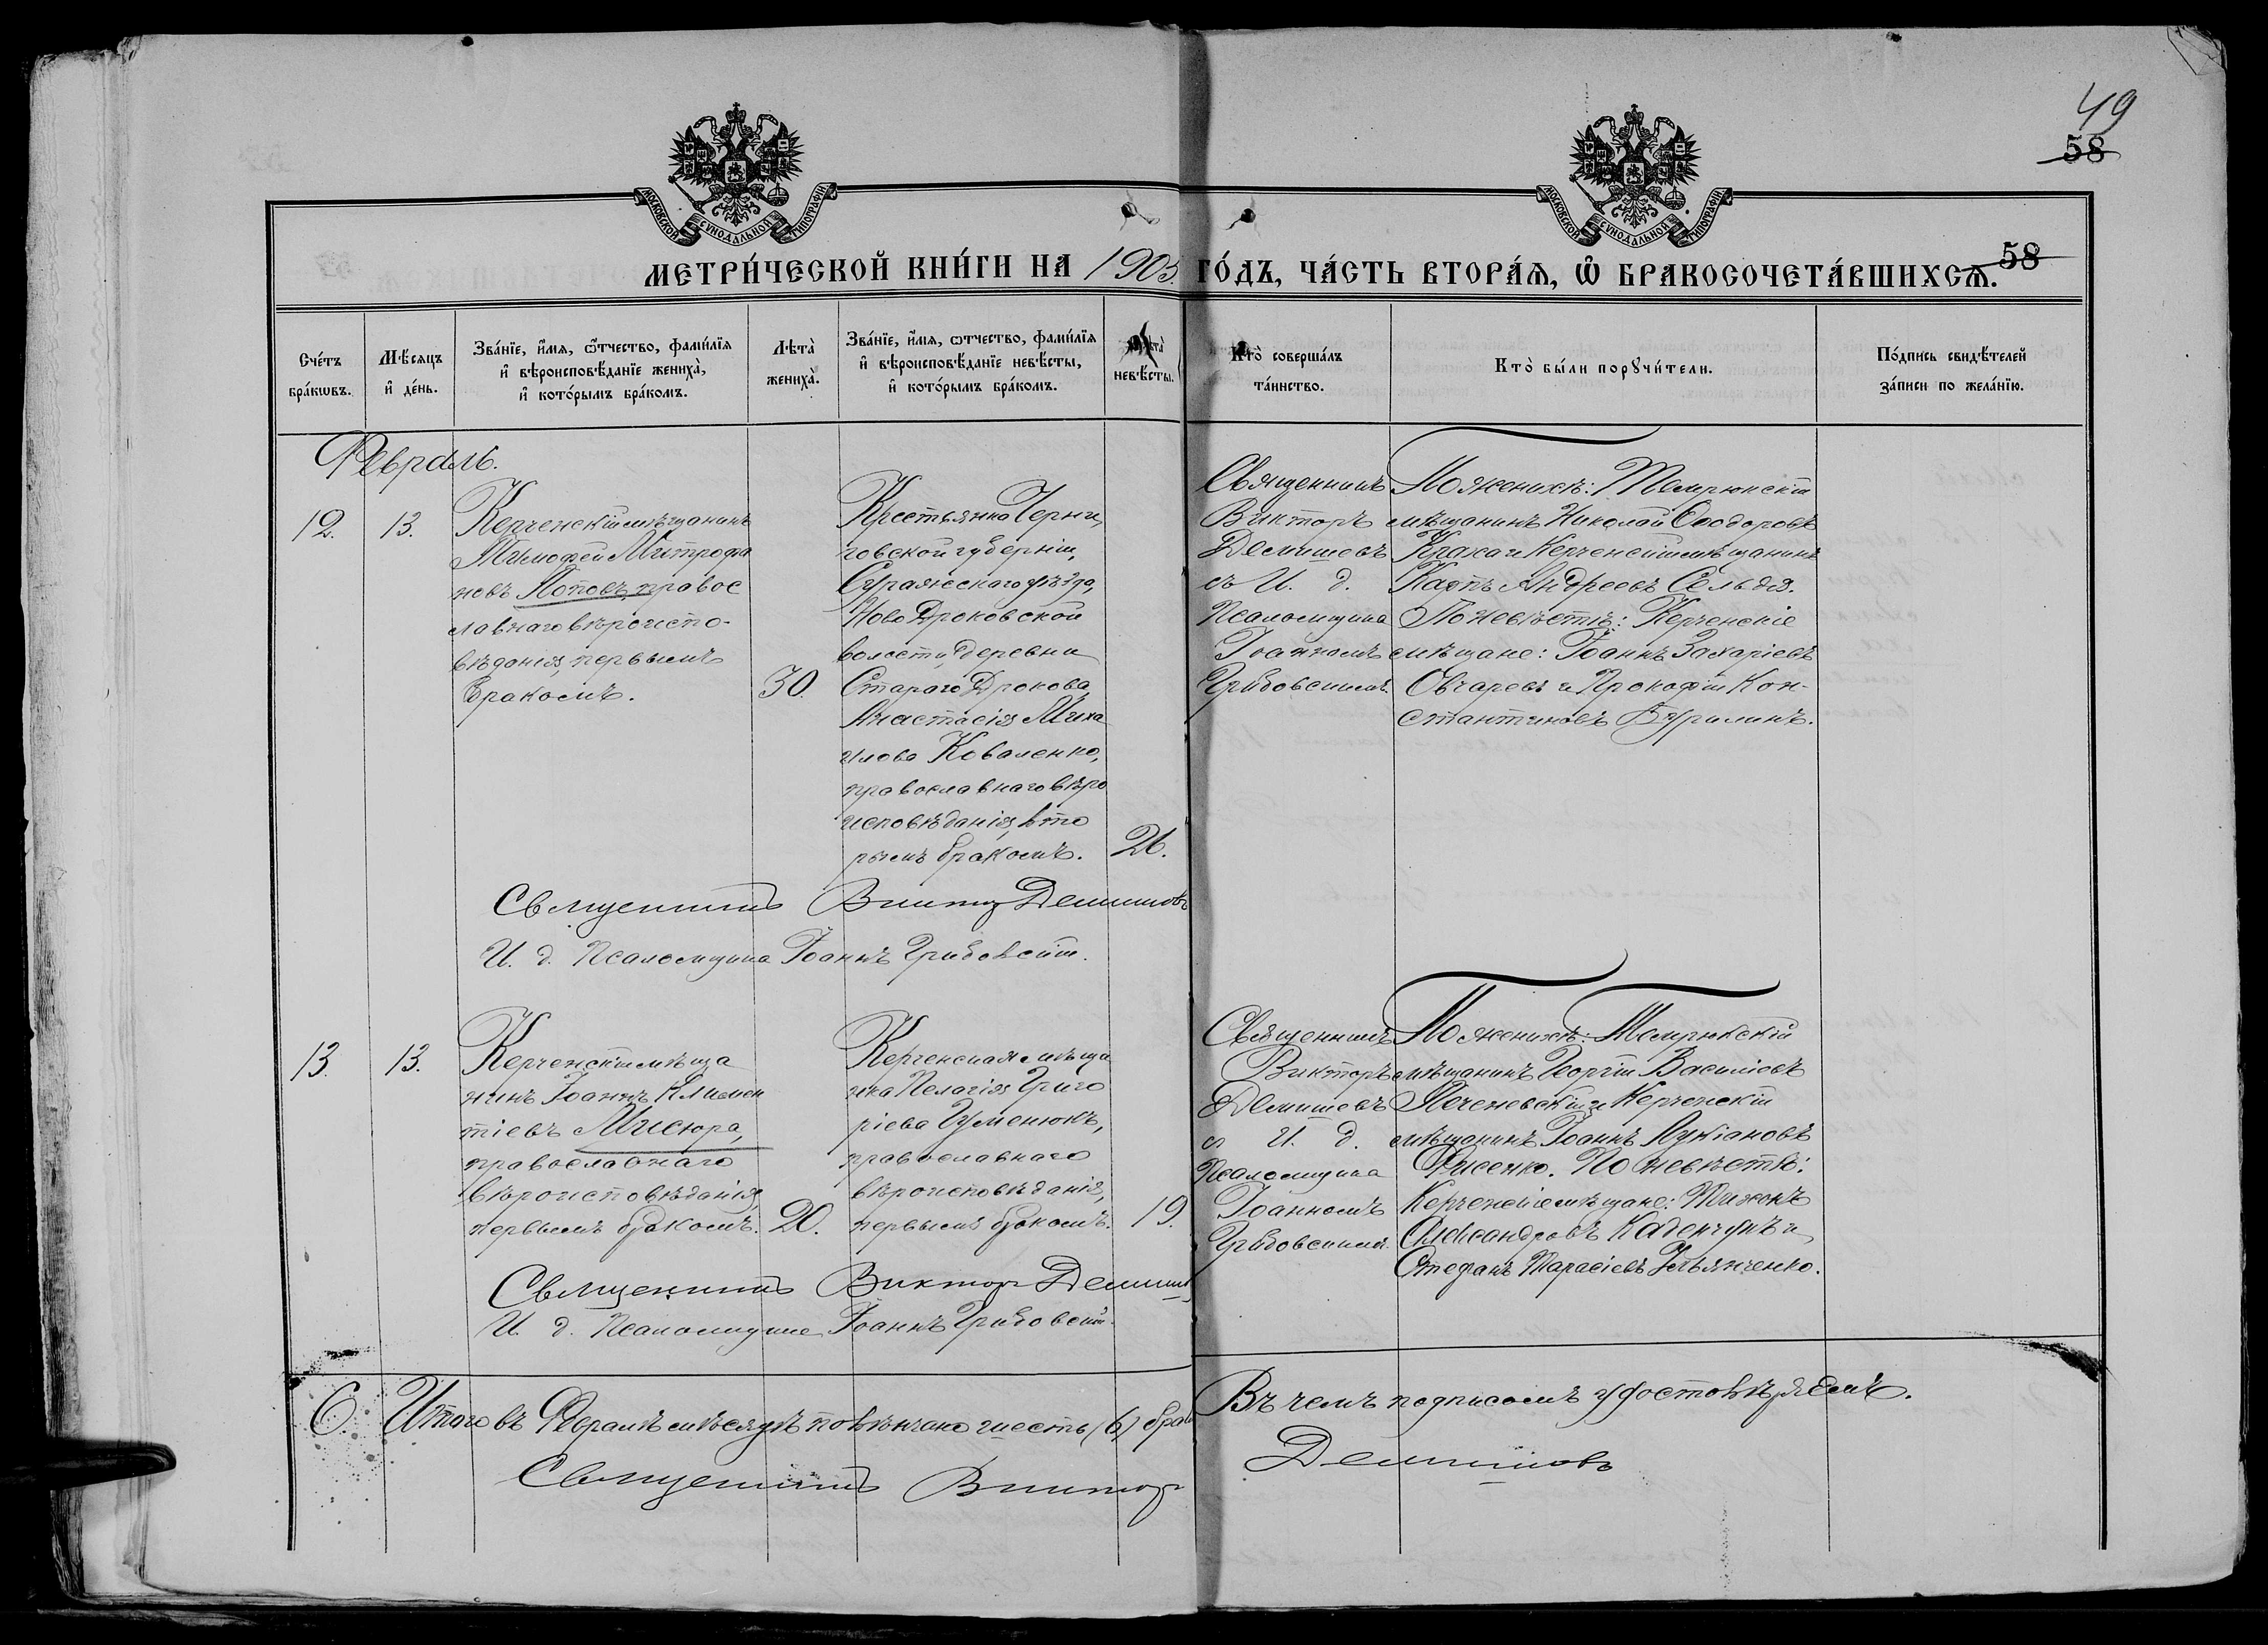 49
58
МОСКОВСКОЙ СѴНОДАЛЬНОЙ ТИПОГРАФІИ
МОСКОВСКОЙ СѴНОДАЛЬНОЙ ТИПОГРАФІИ
МЕТРИ́ЧЕСКОЙ КНИ́ГИ НА 1903 ГО́ДЪ, ЧА́СТЬ ВТОРА́Я, Ѡ҆ БРАКОСОЧЕТА́ВШИХСѦ. 58
Сче́тъ бра́кѡвъ.
Мѣ́сяцъ и҆ де́нь.
Зва́нїе, и҆́мѧ, ѻ҆́тчество, фами́лїѧ и҆ вѣроисповѣ́данїе жениха̀, и҆ кото́рымъ бра́комъ.
Лѣта̀ жениха̀.
Зва́нїе, и҆́мѧ, ѻтчество, фами́лїѧ и҆ вѣроисповѣ́данїе невѣ́сты, и҆ кото́рымъ бра́комъ.
невѣ́сты.
Кто̀ соверша́лъ та́инство.
Кто̀ бы́ли порꙋчи́тели.
По́дпись свидѣ́телей за́писи по жела́нїю.
Февраль.
12.
13.
Керченскій мѣщанинъ
Тимофей Митрофа
новъ Потовъ, правос
лавнаго вѣроиспо-
вѣданія, первымъ
бракомъ.
30.
Крестьянка Черни
говской губерніи,
Суражскаго уѣзда,
Ново Дроковской
волости, деревни
Стараго Дрокова,
Анастасія Миха
илова Коваленко,
православнаго вѣро
исповѣданія, вто
рымъ бракомъ.
26.
Священникъ
Викторъ
Демишевъ
съ И. д.
Псаломщика
Іоанномъ
Грибовскимъ.
По женихѣ: Темрюкскій
мѣщанинъ Николай Ѳеодоровъ
Крака и Керченскій мѣщанинъ
Карпъ Андреевъ Сельдя.
По невѣстѣ: Керченскіе
мѣщане: Іоаннъ Захаріевъ
Овчаревъ и Прокофій Кон-
стантиновъ Бурилинъ.
Священникъ Викторъ Демишевъ
И. д. Псаломщика Іоаннъ Грибовскій.
13.
13.
Керченскій мѣща
нинъ Іоаннъ Климен
тіевъ Мисюра,
православнаго
вѣроисповѣданія,
первымъ бракомъ.
20.
Керченская мѣща
нка Пелагія Григо
ріева Гуменюкъ,
православнаго
вѣроисповѣданія,
первымъ бракомъ.
19.
Священникъ
Викторъ
Демишевъ
съ И. д.
Псаломщика
Іоанномъ
Грибовскимъ.
По женихѣ: Темрюкскій
мѣщанинъ Георгій Василіевъ
Печеневскій и Керченскій
мѣщанинъ Іоаннъ Лукіановъ
Фисенко. По невѣстѣ:
Керченскіе мѣщане: Тихонъ
Александровъ Каденчукъ и
Стефанъ Тарасіевъ Ульянченко.
Священникъ Викторъ Демишевъ
И. д. Псаломщика Іоаннъ Грибовскій.
6. Итого въ Февралѣ мѣсяцѣ повѣнчано шесть (6) брак
Въ чемъ подписомъ удостовѣряемъ.
Священникъ Викторъ Демишевъ